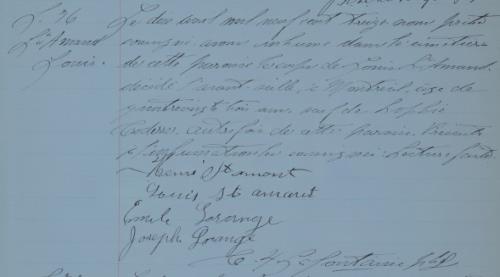 S. 26
St Amand
Louis.
Le dix avril mil neuf cent treize nous prêtre
soussigné avons inhumé dans le cimetière
de cette paroisse le corps de Louis St Amand
décédé l'avant veille, à Montréal, âgé de
quatrevingt trois ans, veuf de Sophie
autrefois de cette paroisse. Présents
à l'inhumation les soussignés. Lecture faite
Henri St amant
Louis St amant
Emile Lorange
Joseph Lorange
Lafontaine ptre